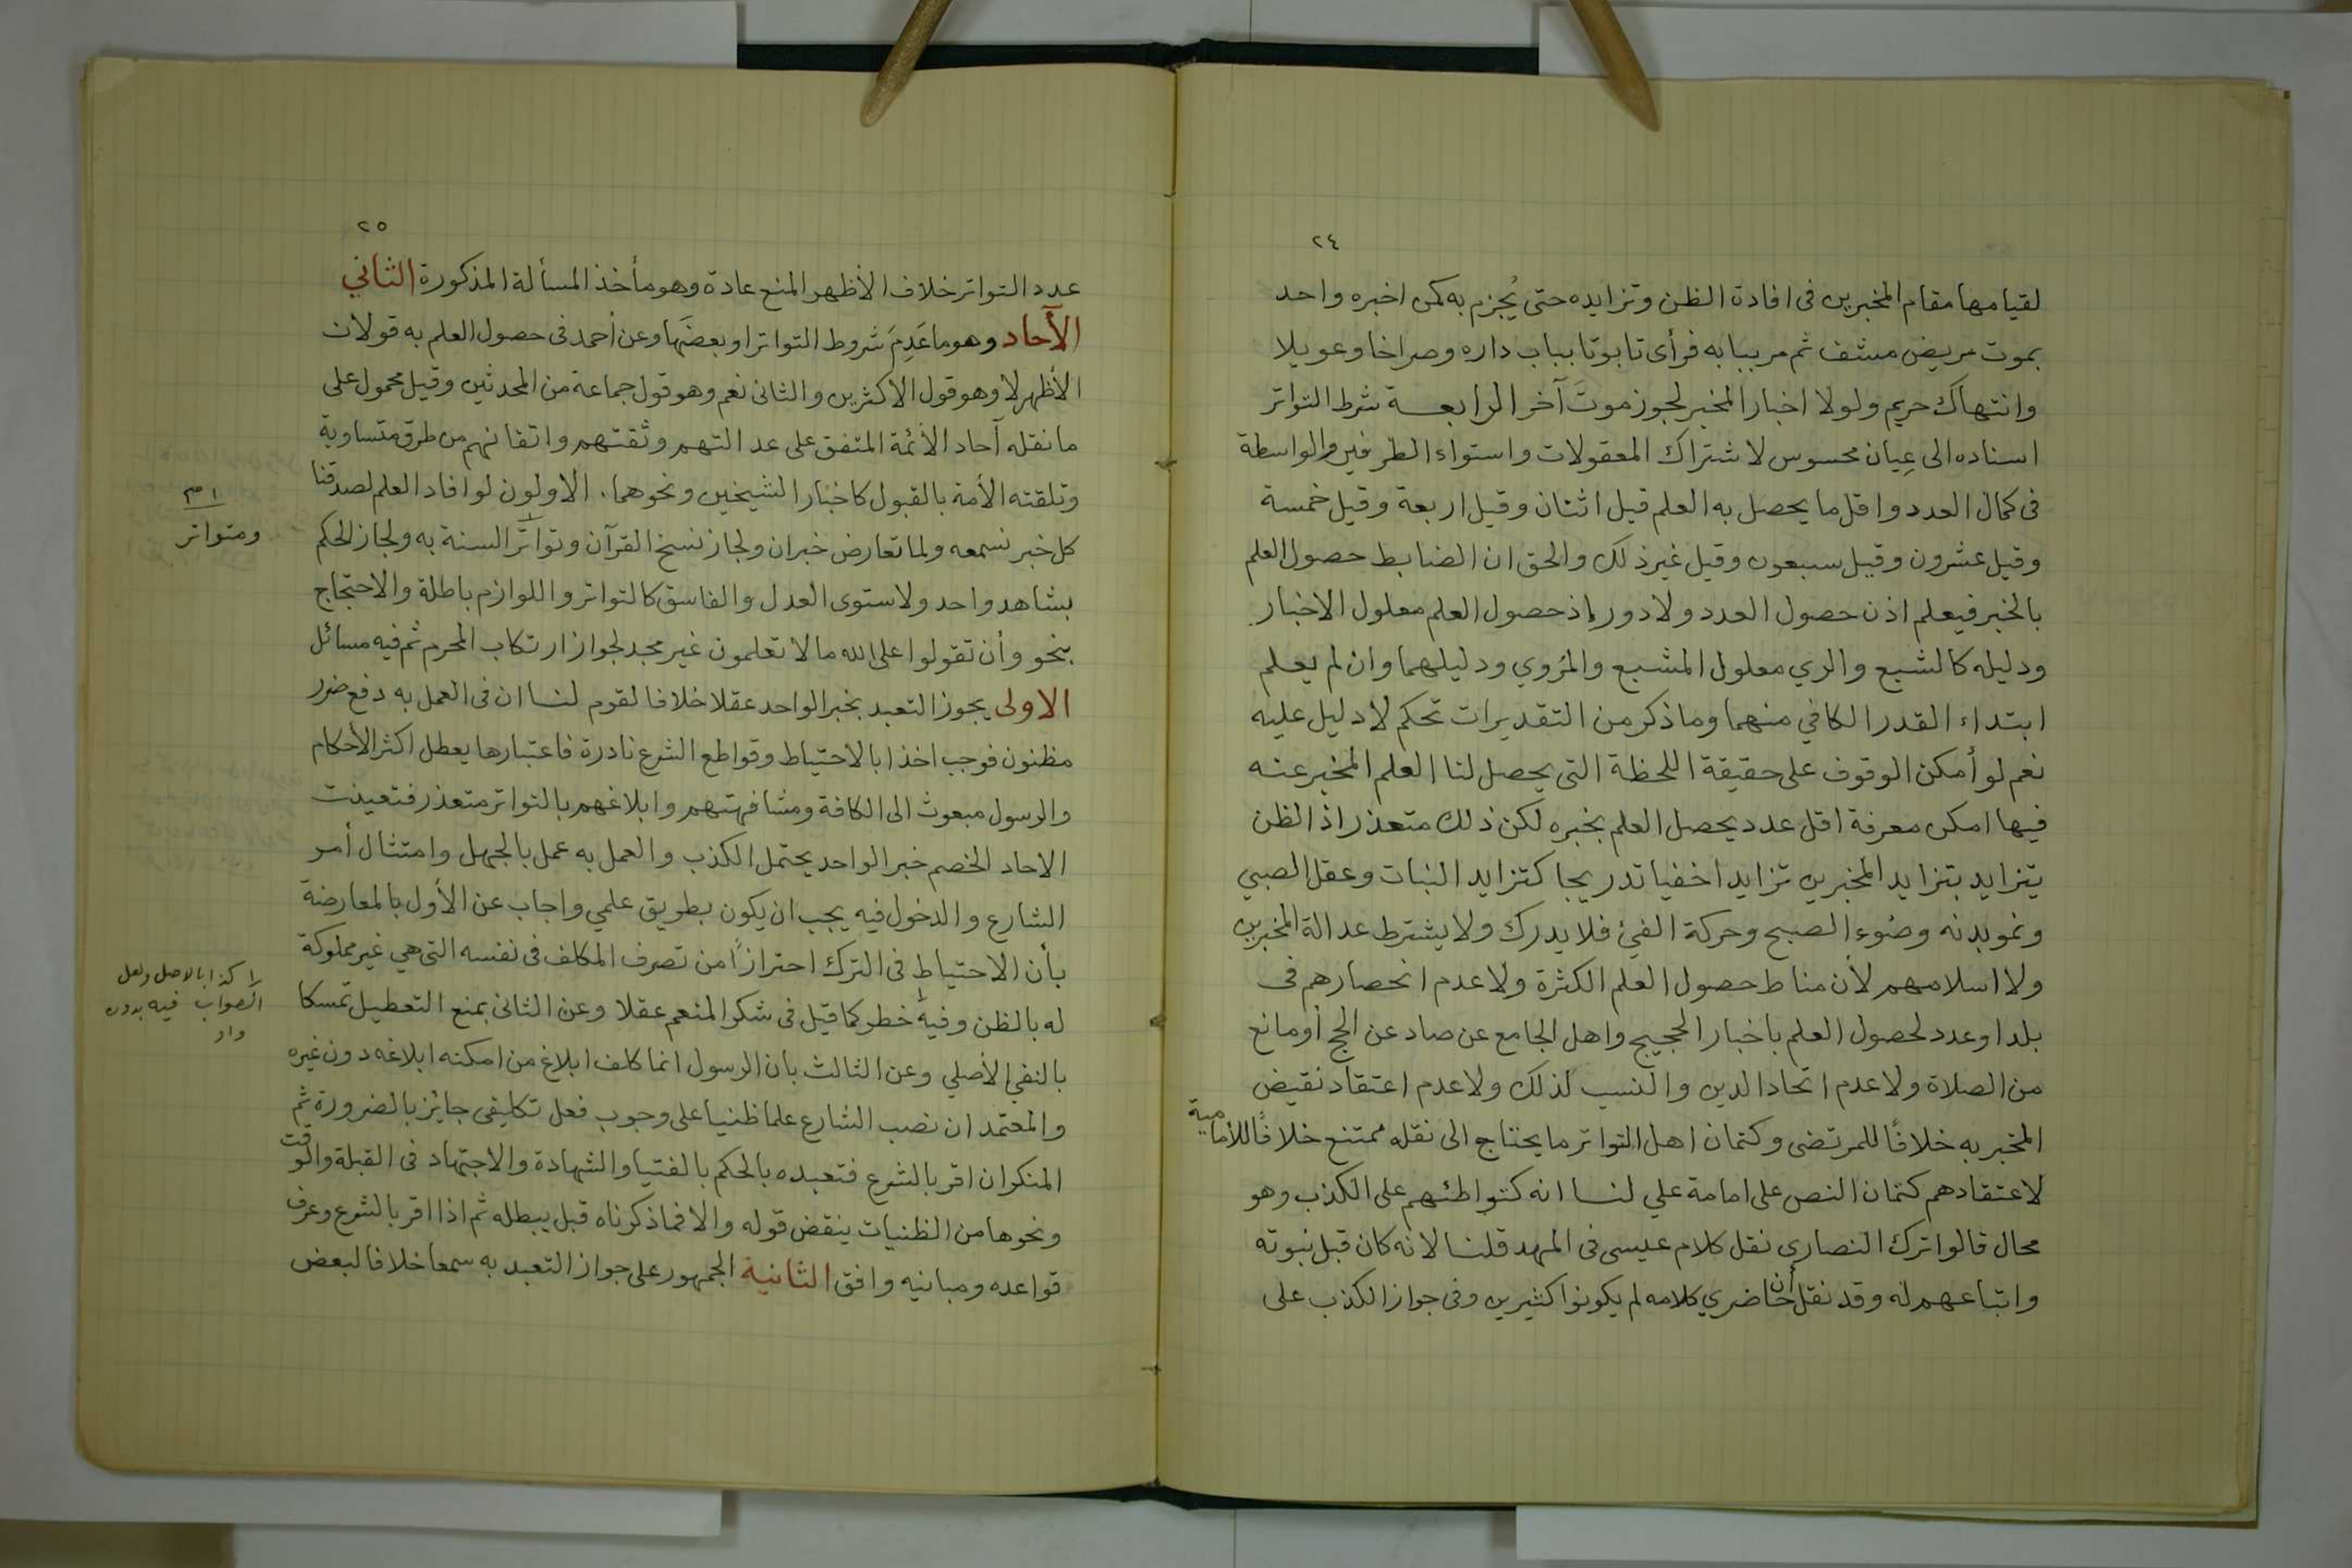 ٢٤
لقيامها مقام المخبرين فى افادة الظن وتزايده حتى يُجزم به كمن اخبره واحد
بموت مريض مشف ثم مر ببابه فرأى تابوتا بباب داره وصراخا وعويلا
وانتهاك حريم ولولا اخبار المخبر لجوز موتَ آخر الرابعة شرط التواتر
اسناده الى عِيان محسوس لاشتراك المعقولات واستواء الطرفين والواسطة
فى كمال العدد واقل ما يحصل به العلم قيل اثنان وقيل اربعة وقيل خمسة
وقيل عشرون وقيل سبعون وقيل غير ذلك والحق ان الضابط حصول العلم
بالخبر فيعلم اذن حصول العدد ولا دور إذ حصول العلم معلول الاخبار
ودليله كالشبع والري معلول المشبع والمُروي ودليلهما وان لم يعلم
ابتداء القدر الكافي منهما وما ذكر من التقديرات تحكم لا دليل عليه
نعم لو أمكن الوقوف على حقيقة اللحظة التى يحصل لنا العلم المخبر عنه
فيها امكن معرفة اقل عدد يحصل العلم بخبره لكن ذلك متعذر اذ الظن
يتزايد بتزايد المخبرين تزايدا خفيا تدريجا كتزايد النبات وعقل الصبي
ونمو بدنه وضوء الصبح وحركة الفئ فلا يدرك ولا يشترط عدالة المخبرين
ولا اسلامهم لأن مناط حصول العلم الكثرة ولا عدم انحصارهم فى
بلد او عدد لحصول العلم باخبار الحجيج واهل الجامع عن صاد عن الحج أو مانع
من الصلاة ولا عدم اتحاد الدين والنسب لذلك ولا عدم اعتقاد نقيض
المخبر به خلافًا للمرتضى وكتمان اهل التواتر ما يحتاج الى نقله ممتنع خلافًا للأمامية
لاعتقادهم كتمان النص على امامة علي لنا انه كتواطئهم على الكذب وهو
محال قالوا ترك النصارى نقل كلام عيسى فى المهد قلنا لانه كان قبل نبوته
واتباعهم له وقد نقل أن حاضري كلامه لم يكونوا كثيرين وفى جواز الكذب على
٢٥
عدد التواتر خلاف الأظهر المنع عادة وهو مأخذ المسألة المذكورة الثاني
الآحاد وهو ما عَدِمَ شروط التواتر او بعضَها وعن أحمد فى حصول العلم به قولان
الأظهر لا وهو قول الاكثرين والثانى نعم وهو قول جماعة من المحدثين وقيل محمول على
ما نقله آحاد الأئمة المتفق على عدالتهم وثقتهم واتقانهم من طرق متساوية
وتلقته الأمة بالقبول كاخبار الشيخين ونحوهما. الاولون لو افاد العلم لصدقنا
كل خبر نسمعه ولما تعارض خبران ولجاز نسخ القرآن وتواتر السنة به ولجاز الحكم
بشاهد واحد ولاستوى العدل والفاسق كالتواتر واللوازم باطلة والاحتجاج
بنحو وأن تقولوا على الله ما لا تعلمون غير مجد لجواز ارتكاب المحرم ثم فيه مسائل
الاولى يجوز التعبد بخبر الواحد عقلا خلافا لقوم لنا ان فى العمل به دفع ضرر
مظنون فوجب اخذا بالاحتياط وقواطع الشرع نادرة فاعتبارها يعطل اكثر الأحكام
والرسول مبعوث الى الكافة ومشافهتهم وابلاغهم بالتواتر متعذر فتعينت
الاحاد الخصم خبر الواحد يحتمل الكذب والعمل به عمل بالجهل وامتثال أمر
الشارع والدخول فيه يجب ان يكون بطريق علمي واجاب عن الأول بالمعارضة
بأن الاحتياط فى الترك احترازًا من تصرف المكلف فى نفسه التى هي غير مملوكة
له بالظن وفيه خطر كما قيل فى شكر المنعم عقلا وعن الثانى بمنع التعطيل تمسكا
بالنفي الأصلي وعن الثالث بان الرسول انما كلف ابلاغ من امكنه ابلاغه دون غيره
والمعتمد ان نصب الشارع علما ظنيا على وجوب فعل تكليفى جايز بالضرورة ثم
المنكر ان اقر بالشرع فتعبده بالحكم بالفتيا والشهادة والاجتهاد فى القبلة والوقت
ونحوها من الظنيات ينقض قوله والا فما ذكرناه قبل يبطله ثم اذا اقر بالشرع وعرف
قواعده ومبانيه وافق الثانية الجمهور على جواز التعبد به سمعا خلافا لبعض
ومتواتر
كذا بالاصل ولعل
الصواب فيه بدون
واو